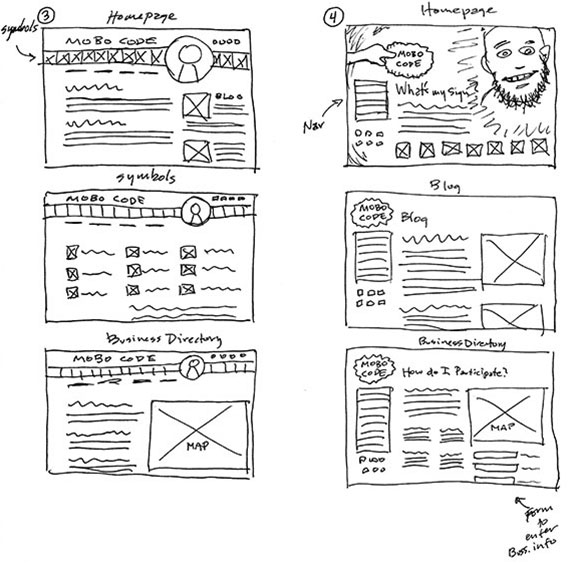 3
Homepage
symbols
MOBO CODE
BLOG
symbols
MOBO CODE
Business Directory
MOBO CODE
MAP
4
Homepage
MOBO
CODE
What's my sign?
Nav
Blog
MOBO
CODE
Blog
Business Directory
MOBO
CODE
How do I Participate?
MAP
Form
to
enter
Buss. info